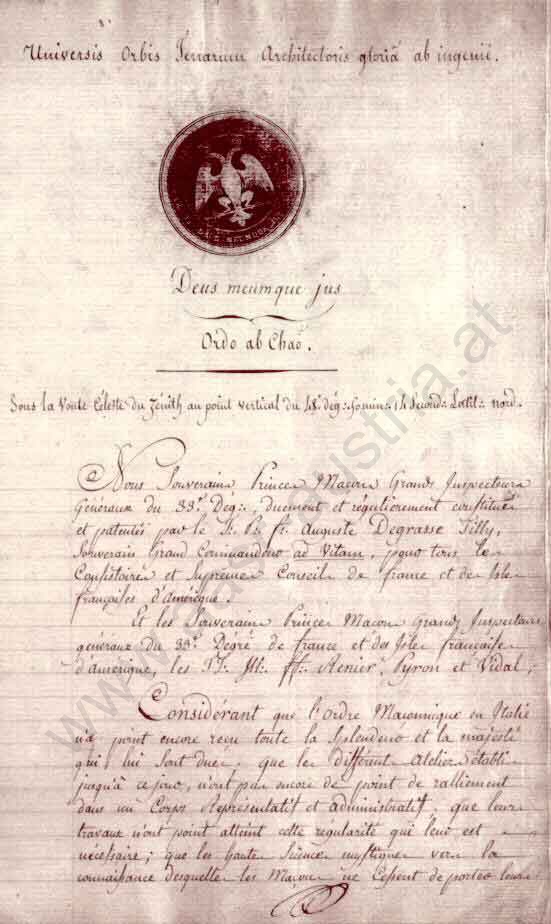 Universis Orbis Terrarum Architectoris gloria ab ingenii.
Deus meumque jus
Ordo ab Chao.
Sous la Voute Céleste du Zénith au point vertical du 48e. dég: 50 min: 14 Second: Latit: nord.
Nous Souverains Princes Maçons Grands Inspecteurs
Généraux du 33e. Deg:, duement et régulièrement constitués
et patentés par le Auguste Degrasse Tilly,
Souverain Grand Commandeur ad Vitam, pour tous les
Consistoires et Suprême Conseil de france et des Isles
françaises d'Amérique.
Et les Souverains Princes Maçons Grands Inspecteurs
généraux du 33e. Dégré de france et des Isles françaises
d'Amérique, les Renier, Pyron et Vidal;
Considérant que l'Ordre Maçonnique en Italie
n'a point encore reçu toute la Splendeur et la majesté
qui lui Sont dues, que les différents Ateliers établis
jusqu'à ce jour, n'ont pas encore de point de ralliement
dans un Corps Représentatif et administratif, que leurs
travaux n'ont point atteint cette regularité qui leur est
nécessaire; que les hautes Sciences mystiques vers la
connaissance desquelles les Maçons ne Cessent de porter leurs
www. austria.at